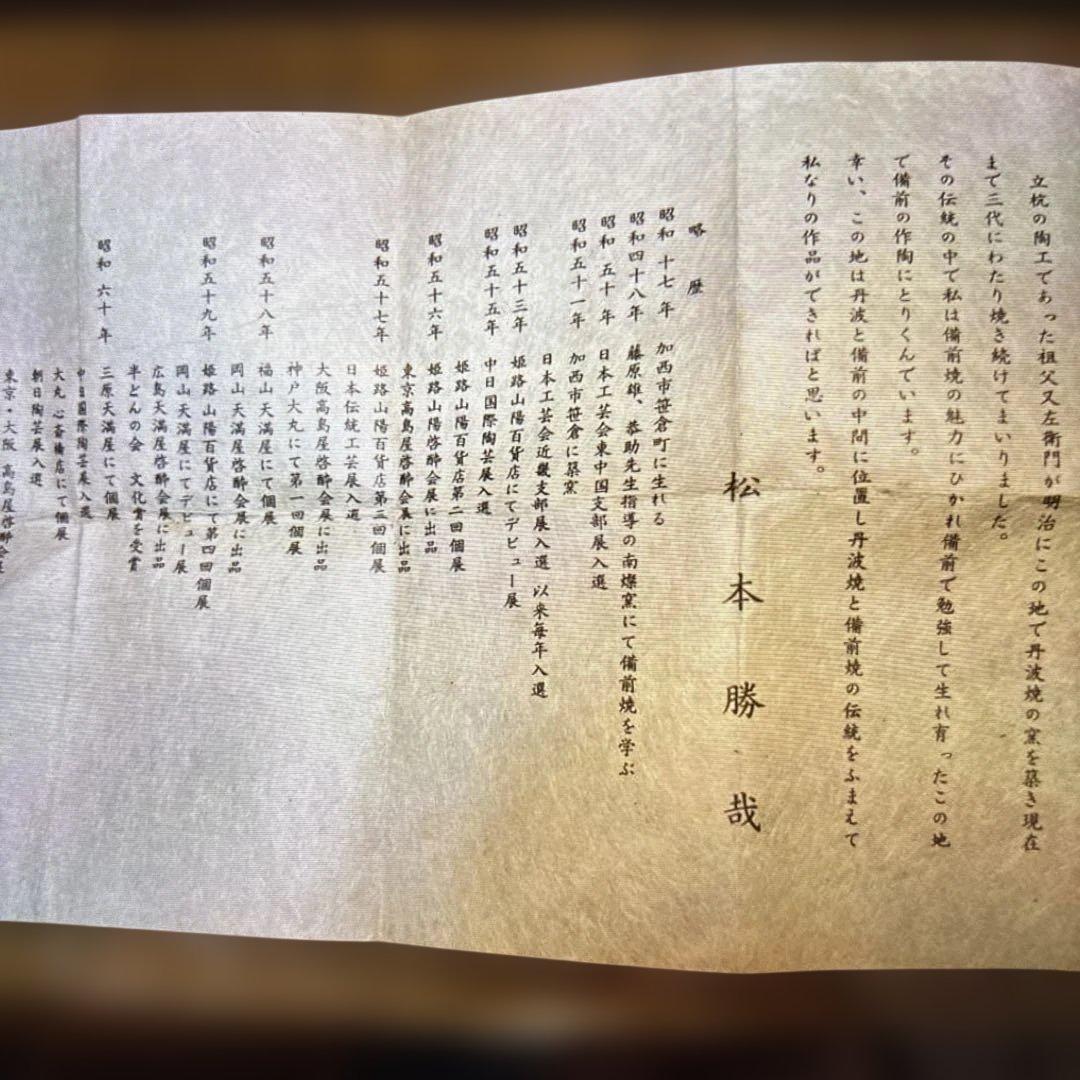 立杭の陶工であった祖父又左衛門が明治にこの地で丹波焼の窯を築き現在
まで三代にわたり焼き続けてまいりました。
その伝統の中で私は備前焼の魅力にひかれ備前で勉強して生れ育ったこの地
で備前の作陶にとりくんでいます。
幸い、この地は丹波と備前の中間に位置し丹波焼と備前焼の伝統をふまえて
私なりの作品ができればと思います。
松本勝哉
略歴
昭和十七年 加西市笹倉町に生れる
昭和四十八年 藤原雄、恭助先生指導の南燦窯にて備前焼を学ぶ
昭和五十年 日本工芸会東中国支部展入選
昭和五十一年 加西市笹倉に築窯
日本工芸会近畿支部展入選 以来毎年入選
昭和五十三年 姫路山陽百貨店にてデビュー展
昭和五十五年 中日国際陶芸展入選
姫路山陽百貨店第二回個展
昭和五十六年 姫路山陽啓酔会展に出品
東京高島屋啓酔会展に出品
昭和五十七年 姫路山陽百貨店第三回個展
日本伝統工芸展入選
大阪高島屋啓酔会展に出品
神戸大丸にて第一回個展
昭和五十八年 福山天満屋にて個展
岡山天満屋啓酔会展に出品
昭和五十九年 姫路山陽百貨店にて第四回個展
岡山天満屋にてデビュー展
広島天満屋啓酔会展に出品
半どんの会 文化賞を受賞
昭和六十年 三原天満屋にて個展
中日国際陶芸展入選
大丸心斎橋店にて個展
朝日陶芸展入選
東京・大阪 高島屋啓酔会展